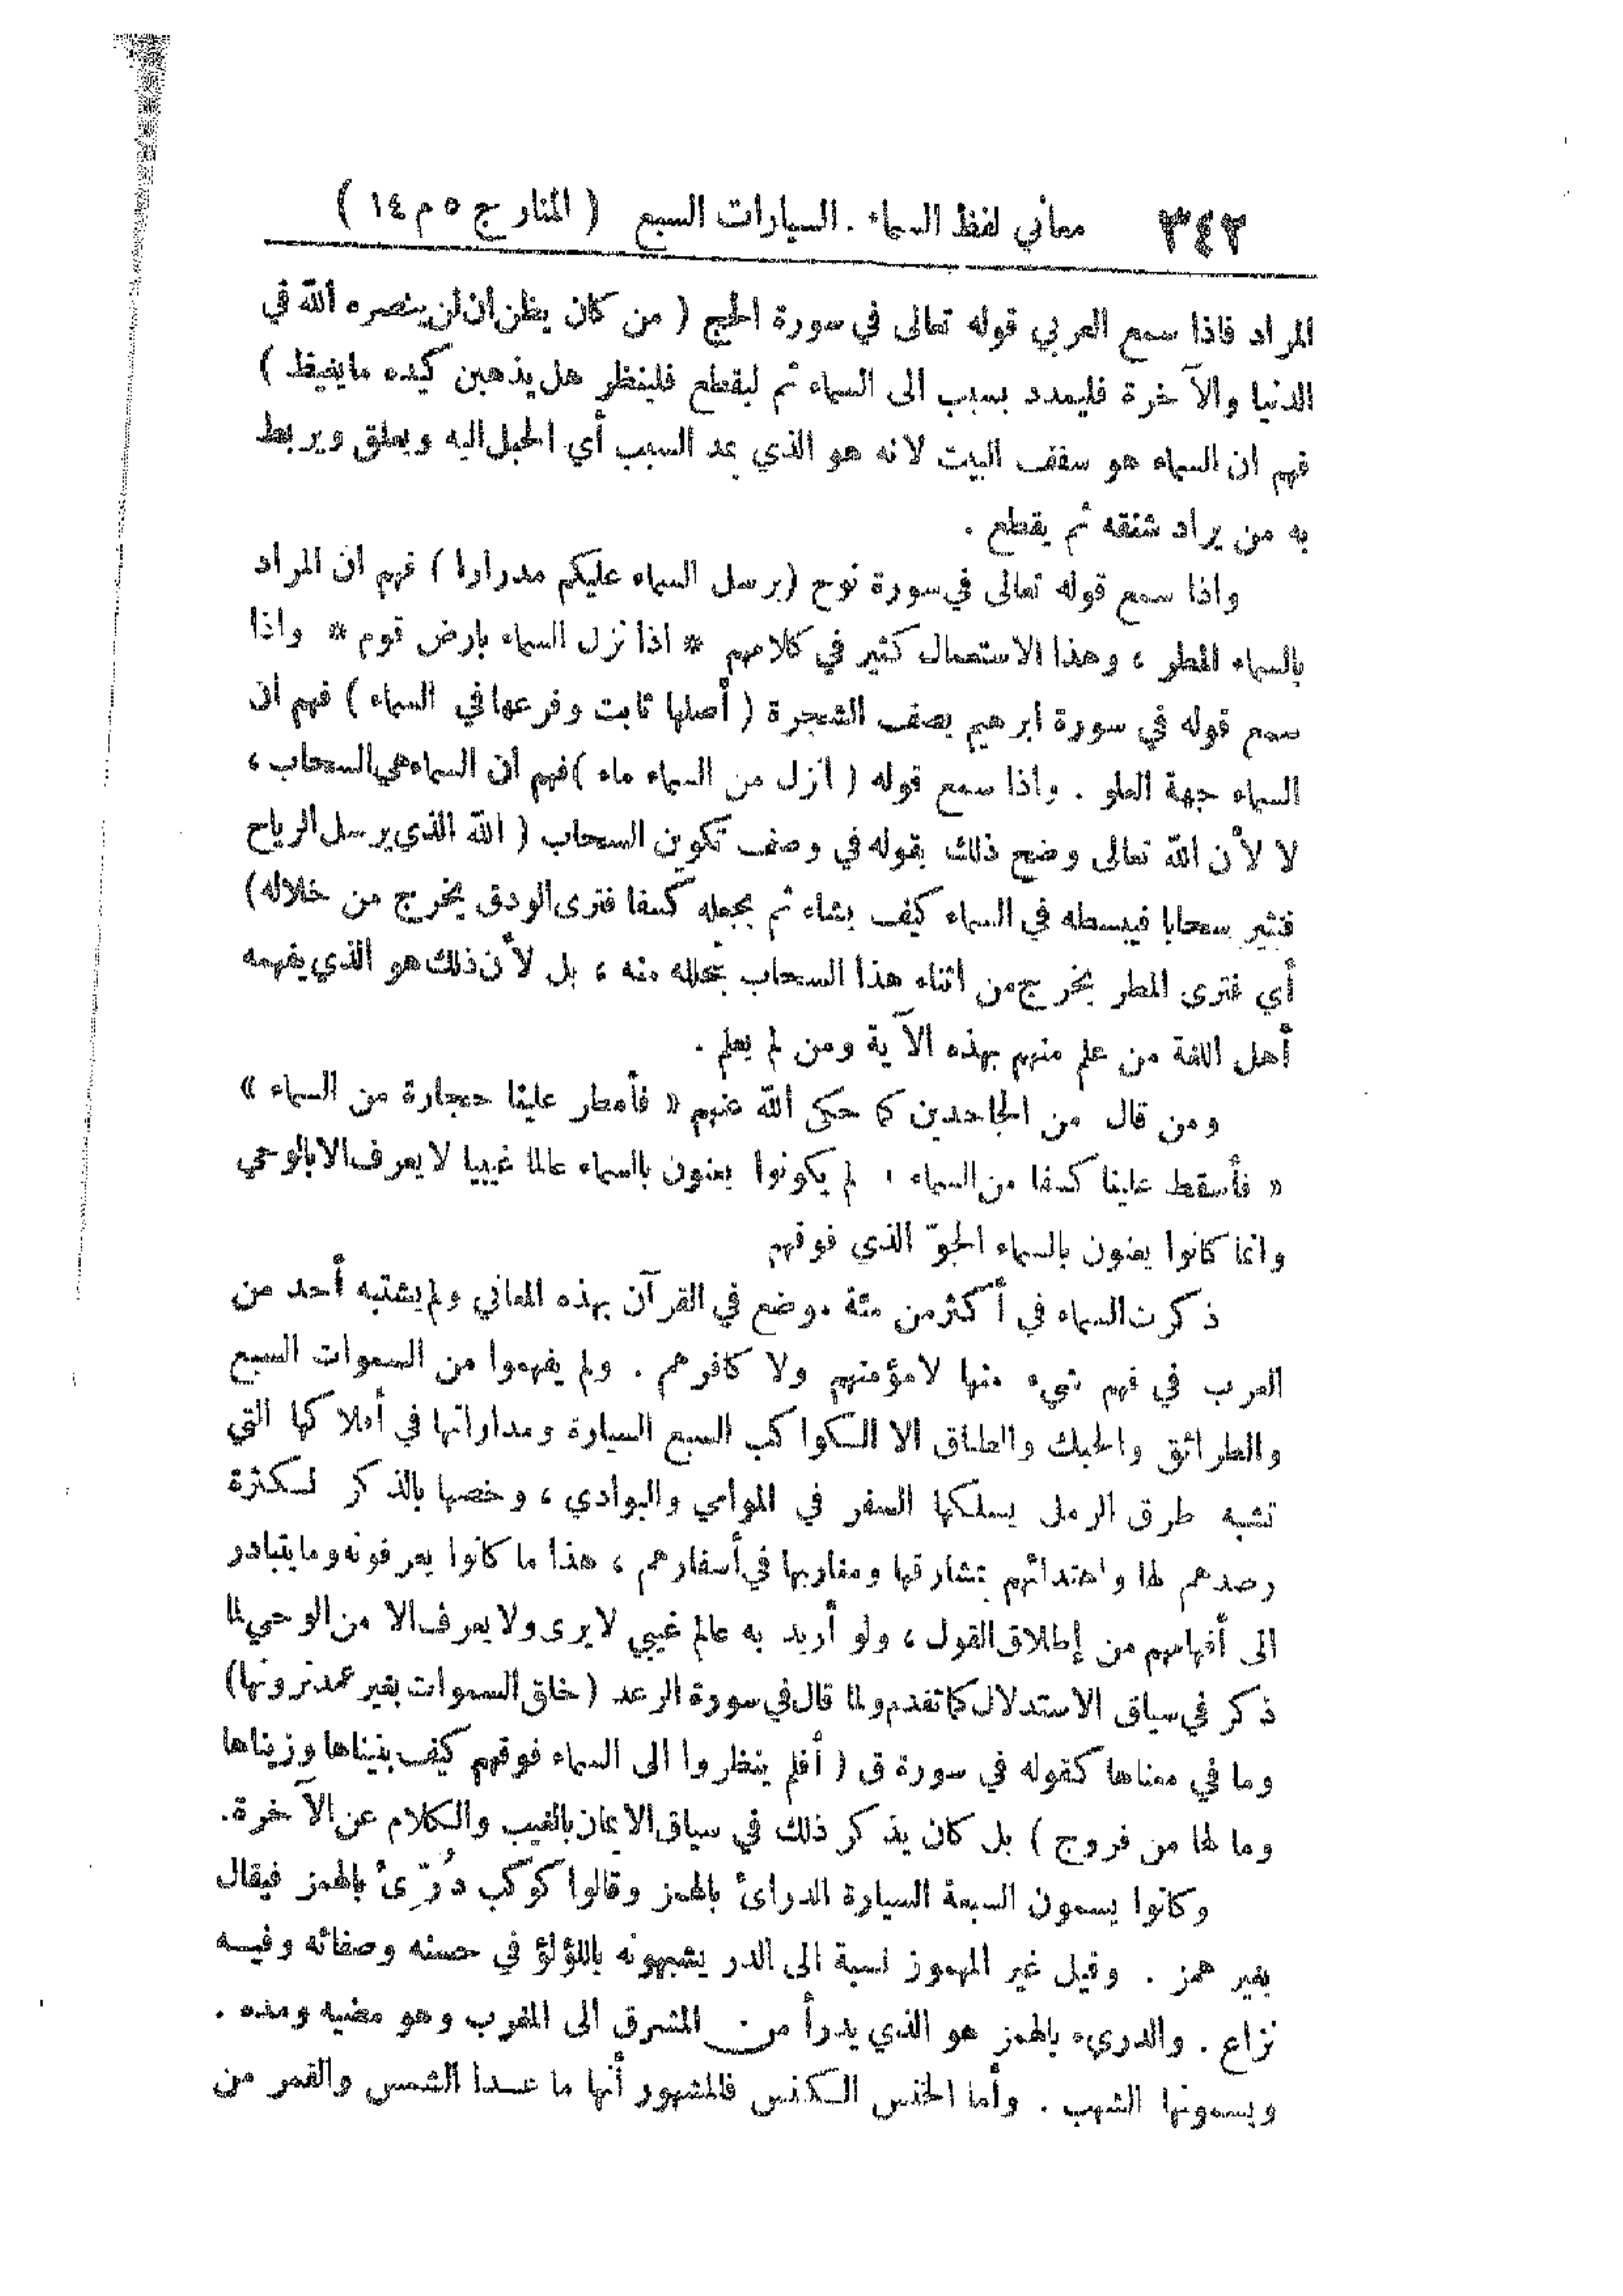 ٣٤٢ معاني لفظ السماء . السيارات السبع ( المنار ج ٥ م ١٤ )
المراد فاذا سمع العربي قوله تعالى في سورة الحج ( من كان يظن أن لن ينصره الله في
الدنيا والآخرة فليمدد بسبب الى السماء ثم ليقطع فلينظر هل يذهبن كيده ما يغيظ )
فهم ان السماء هو سقف البيت لانه هو الذي يمد السبب أي الحبل اليه ويعلق ويربط
به من يراد شنقه ثم يقطع .
واذا سمع قوله تعالى في سورة نوح (يرسل السماء عليكم مدرارا ) فهم ان المراد
بالسماء المطر ، وهذا الاستعمال كثير في كلامهم * اذا نزل السماء بارض قوم * واذا
سمع قوله في سورة ابرهيم يصف الشجرة ( أصلها ثابت وفرعها في السماء ) فهم ان
السماء جهة العلو . واذا سمع قوله ( انزل من السماء ماء ) فهم ان السماء هي السحاب ،
لا لأن الله تعالى وضح ذلك بقوله في وصف تكوين السحاب ( الله الذي يرسل الرياح
فتثير سحابا فيبسطه في السماء كيف يشاء ثم يجعله كسفا فترى الودق يخرج من خلاله)
أي فترى المطر يخرج من اثناء هذا السحاب بتحلله منه ، بل لأن ذلك هو الذي يفهمه
أهل اللغة من علم منهم بهذه الآية ومن لم يعلم .
ومن قال من الجاحدين كما حكى الله عنهم « فأمطر علينا حجارة من السماء »
« فأسقط علينا كسفا من السماء ، لم يكونوا يعنون بالسماء عالما غيبيا لا يعرف الا بالوحي
وانما كانوا يعنون بالسماء الجوّ الذي فوقهم
ذكرت السماء في أكثر من مئة موضع في القرآن بهذه المعاني ولم يشتبه أحد من
العرب في فهم شيء منها لا مؤمنهم ولا كافرهم . ولم يفهموا من السموات السبع
والطرائق والحبك والطباق الا الكواكب السبع السيارة ومداراتها في أفلاكها التي
تشبه طرق الرمل يسلكها السفر في الموامي والبوادي ، وخصها بالذكر لكثرة
رصدهم لها واهتدائهم بمشارقها ومغاربها في أسفارهم ، هذا ما كانوا يعرفونه وما يتبادر
الى أفهامهم من إطلاق القول ، ولو أريد به عالم غيبي لا يرى ولا يعرف الا من الوحي لما
ذكر في سياق الاستدلال كما تقدم ولما قال في سورة الرعد (خلق السموات بغير عمد ترونها)
وما في معناها كقوله في سورة ق ( أفلم ينظروا الى السماء فوقهم كيف بنيناها وزيناها
وما لها من فروج ) بل كان يذكر ذلك في سياق الايمان بالغيب والكلام عن الآخرة.
وكانوا يسمون السبعة السيارة الدرائ بالهمز وقالوا كوكب دُرِّئ بالهمز فيقال
بغير همز . وقيل غير المهموز نسبة الى الدر يشبهونه باللؤلؤ في حسنه وصفائه وفيه
نزاع . والدريء بالهمز هو الذي يدرأ من المشرق الى المغرب وهو مضيه ومنده .
ويسمونها الشهب . وأما الخنس الكنس فالمشهور أنها ما عدا الشمس والقمر من